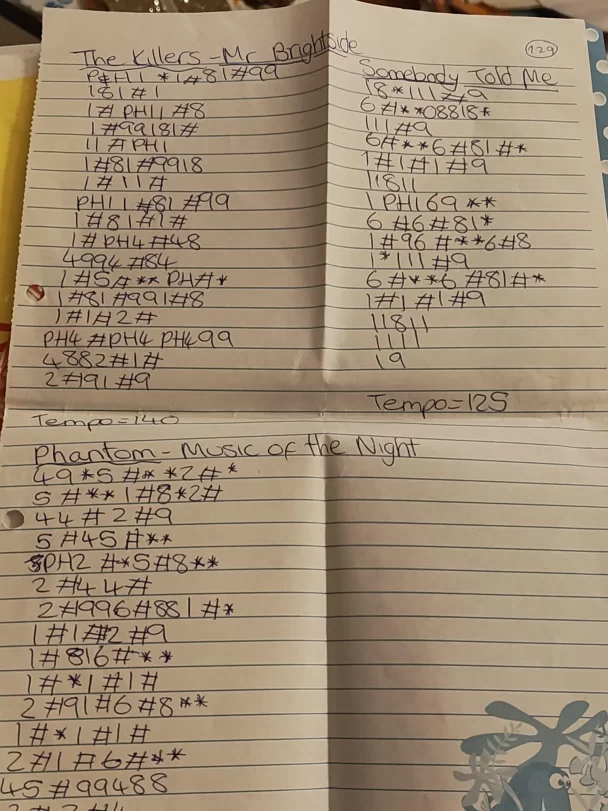 The Killers - Mr Brightside
PH11 *1#81#99
181#1
1# PH11 #8
1#99181#
11#PH1
1#81#9918
1#11#
PH11#81#99
1#81#1#
1#PH4#48
4994#84
1#5#**PH#*
1#81#991#8
1#1#2#
PH4 #PH4 PH499
4882#1#
2#191#9
Tempo=140
129
Somebody Told Me
18*111#9
6#**08818*
111#9
6#**6#81#*
1#1#1#9
11811
1PH169**
6#6#81*
1#96#**6#8
1*111#9
6#**6#81#*
1#1#1#9
11811
1111
19
Tempo=125
Phantom - Music of the Night
49*5#**2#*
5#**1#8*2#
44#2#9
5#45#**
PH2#*5#8**
2#44#
2#996#881#*
1#1#2#9
1#816#**
1#*1#1#
2#91#6#8**
1#*1#1#
2#1#6#**
45#99488